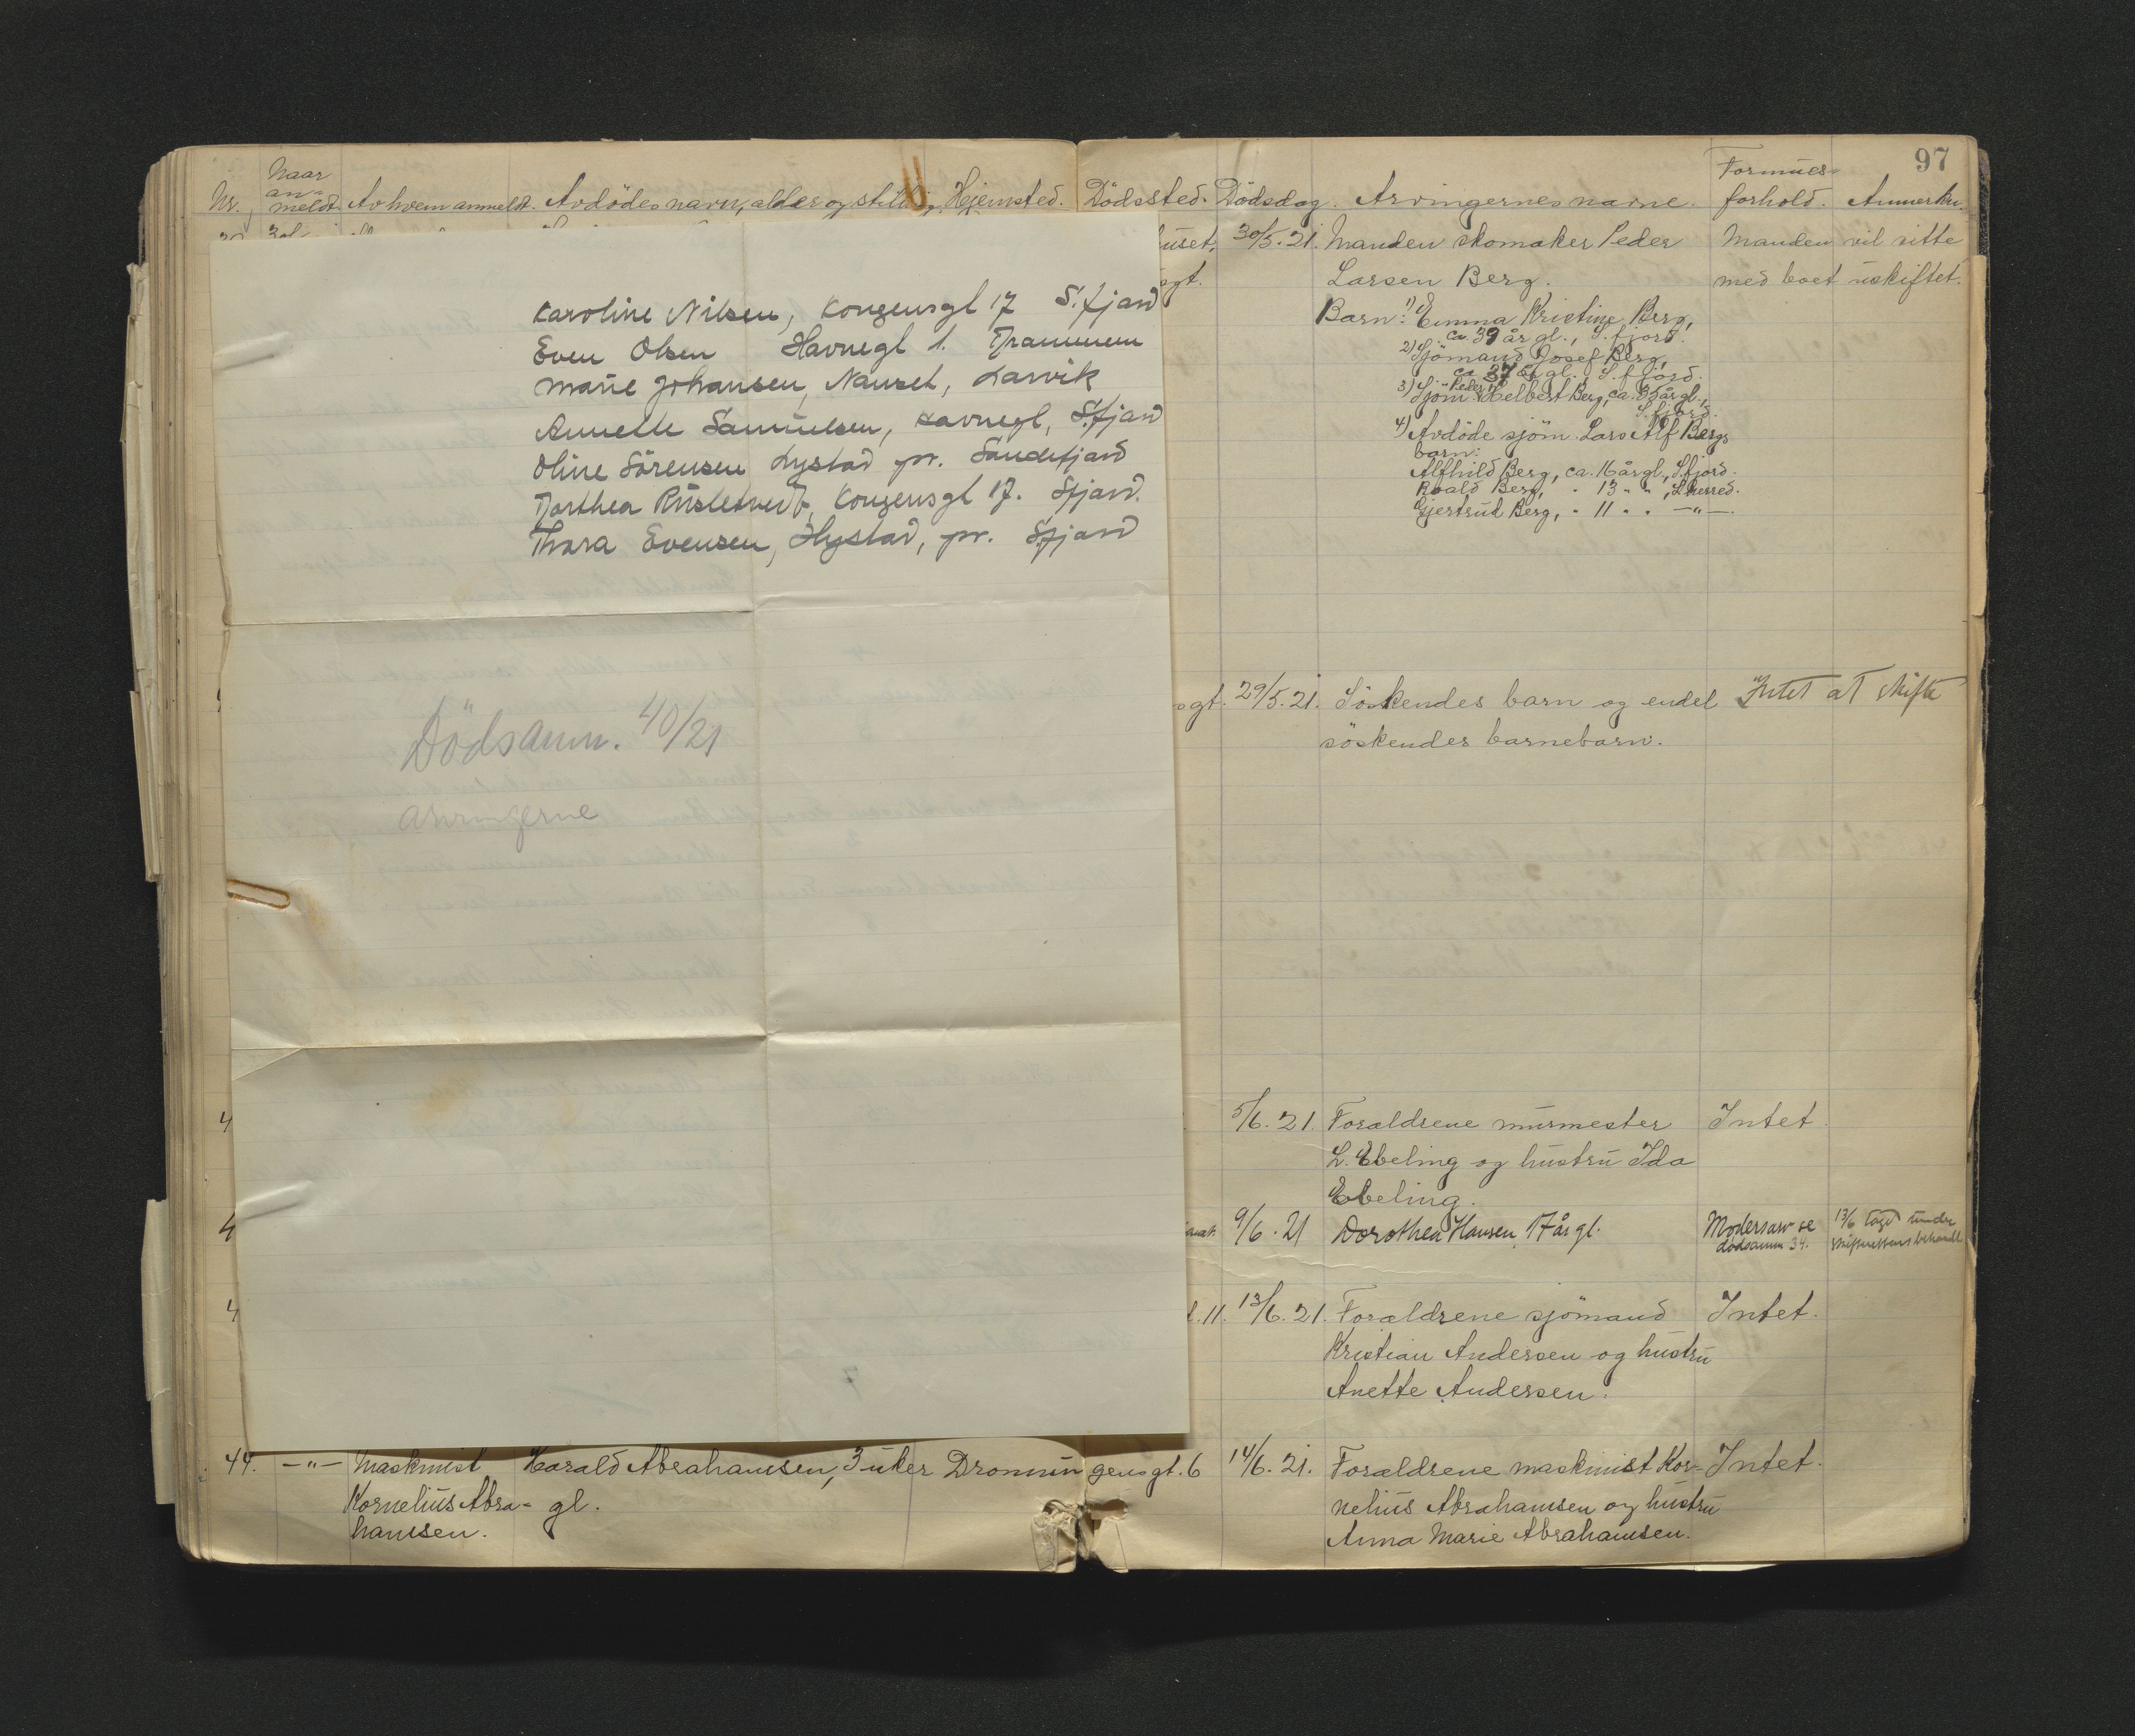 97
Nr. Naar an-meldt. Av hvem anmeldt. Avdödes navn, alder og stilling. Hjemsted. Dödssted. Dödsdag. Arvingernes navne. Formues-forhold. Anmerkn.
Karoline Nilsen, Kongensgt 17 S.fjord
Even Olsen Havnegt 1. Drammen
Marie Johansen, Nanset, Larvik
Annette Samuelsen, Havnegt, S.fjord
Oline Sörensen Lystad pr. Sandefjord
Dorthea Kongensgt 17. Sfjord.
Thora Evensen, Hystad, pr. Sfjord
Dödsanm. 40/21
arvingerne
huset. 30/5.21. Manden skomaker Peder Manden vil sitte
sgt. Larsen Berg. med boet uskiftet.
Barn: 1) Emma Kristine Berg,
ca. 39 år gl., S.fjord.
2) Sjömand Josef Berg,
ca 37 år gl., S.fjord.
3) Sjöm. Peder Helbert Berg, ca. 35 år gl.,
S.fjord.
4) Avdöde sjöm. Lars Alf Bergs
barn:
Alfhild Berg, ca. 16 år gl., S.fjord.
Roald Berg, " 13 " " , S.herred.
Gjertrud Berg, " 11 " " —"—.
sgt. 29/5.21. Söskendes barn og endel Intet at skifte
söskendes barnebarn.
4 5/6.21. Forældrene murmester Intet.
L. Ebeling og hustru Ida
Ebeling.
4 9/6.21 Dorothea Hansen 17 år gl. Modersarv se 13/6 tagt under
dödsanm 34. skifterettens behandl.
4 t.11. 13/6.21. Forældrene sjömand Intet.
Kristian Andersen og hustru
Anette Andersen.
44. —"— Maskinist Harald Abrahamsen, 3 uker Dronningensgt. 6 14/6.21. Forældrene maskinist Kor- Intet.
Kornelius Abra- gl. nelius Abrahamsen og hustru
hamsen. Anna Marie Abrahamsen.